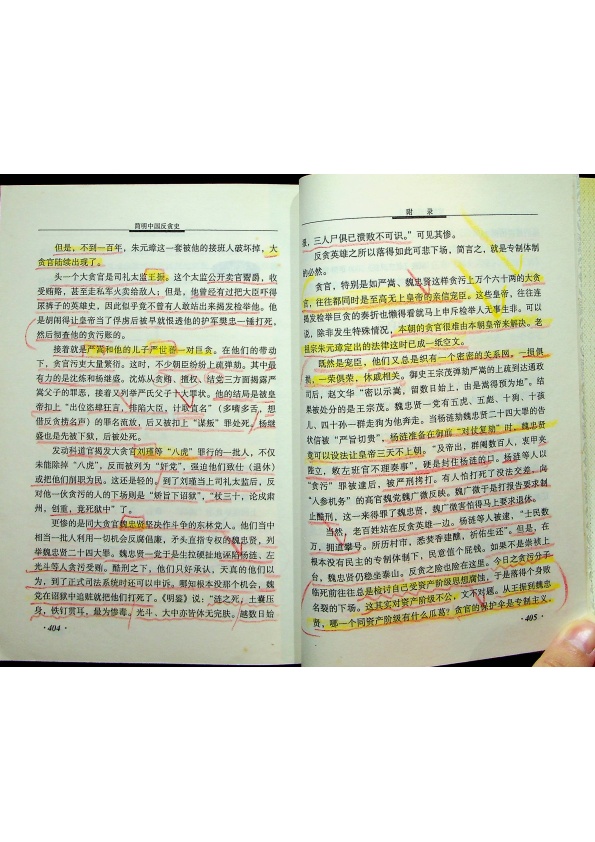 简明中国反贪史
但是，不到一百年，朱元璋这一套被他的接班人破坏掉，大
贪官陆续出现了。
头一个大贪官是司礼太监王振。这个太监公开卖官鬻爵，收
受贿赂，甚至走私军火卖给敌人；但是，他曾经有过把大臣吓得
尿裤子的英雄史，因此似乎竟不曾有人敢站出来揭发检举他。他
是胡闹得让皇帝当了俘虏后被早就恨透他的护军樊忠一锤打死，
然后彻查他的贪污账的。
接着就是严嵩和他的儿子严世蕃一对巨贪。在他们的带动
下，贪官污吏大量繁衍。这时，不少朝臣纷纷上疏弹劾。其中最
有力的是沈炼和杨继盛。沈炼从贪贿、擅权、结党三方面揭露严
嵩父子的罪恶，接着又列举严氏父子十大罪状。他的结局是被皇
帝扣上“出位恣肆狂言，排陷大臣，计取直名”（多嘴多舌，想
借反贪捞名声）的罪名流放，后又被扣上“谋叛”罪处死。杨继
盛也是先被下狱，后被处死。
发动科道官揭发大贪官刘瑾等“八虎”罪行的一批人，不仅
未能除掉“八虎”，反而被列为“奸党”，强迫他们致仕（退休）
或把他们削职为民。这还是轻的，到了刘瑾当上司礼太监后，反
对他一伙贪污的人的下场则是“矫旨下诏狱”，“杖三十，论戍肃
州，创重，竟死狱中”了。
更惨的是同大贪官魏忠贤坚决作斗争的东林党人。他们当中
相当一批人利用一切机会反腐倡廉，矛头直指专权的魏忠贤，列
举魏忠贤二十四大罪。魏忠贤一党于是生拉硬扯地诬陷杨涟、左
光斗等人贪污受贿。酷刑之下，他们只好承认，天真的他们以
为，到了正式司法系统时还可以申诉。哪知根本没那个机会，魏
党在诏狱中追赃就把他们打死了。《明鉴》说：“涟之死，土囊压
身，铁钉贯耳，最为惨毒。光斗、大中亦皆体无完肤。越数日始
·404·
附 录
报，三人尸俱已溃败不可识。”可见其惨。
反贪英雄之所以落得如此可悲下场，简言之，就是专制体制
的必然。
贪官，特别是如严嵩、魏忠贤这样贪污上万个六十两的大贪
官，往往都同时是至高无上皇帝的亲信宠臣。这些皇帝，往往连
揭发检举巨贪的奏折也懒得看就马上申斥检举人无事生非。可以
说，除非发生特殊情况，本朝的贪官很难由本朝皇帝来解决。老
祖宗朱元璋定出的法律这时已成一纸空文。
既然是宠臣，他们又总是织有一个密密的关系网。一损俱
损，一荣俱荣，休戚相关。御史王宗茂弹劾严嵩的上疏到达通政
司后，赵文华“密以示嵩，留数日始上，由是嵩得预为地”。结
果被处分的是王宗茂。魏忠贤一党有五虎、五彪、十狗、十孩
儿、四十孙一群走狗为他奔走。当杨涟劾魏忠贤二十四大罪的告
状信被“严旨切责”，杨涟准备在御前“对仗复劾”时，魏忠贤
竟可以设法让皇帝三天不上朝。“及帝出，群阉数百人，衷甲夹
陛立，敕左班官不理奏事”，硬是封住杨涟的口。杨涟等人以
“贪污”罪被逮后，被严刑拷打。有人怕打死了没法交差。向
“入参机务”的高官魏党魏广微反映。魏广微于是打报告要求制
止酷刑，这一来得罪了魏忠贤，魏广微害怕得马上要求退休。
当然，老百姓站在反贪英雄一边。杨涟等人被逮，“士民数
万，拥道攀号。所历村市，悉焚香建醮，祈佑生还”。但是，在
根本没有民主的专制体制下，民意值个屁钱。如果不是崇祯上
台，魏忠贤仍稳坐泰山。反贪之险也险在这里。今日之贪污分子
临死前往往总是检讨自己受资产阶级思想腐蚀，于是落得个身败
名裂的下场。这其实对资产阶级不公，文不对题。从王振到魏忠
贤，哪一个同资产阶级有什么瓜葛？贪官的保护伞是专制主义，
·405·